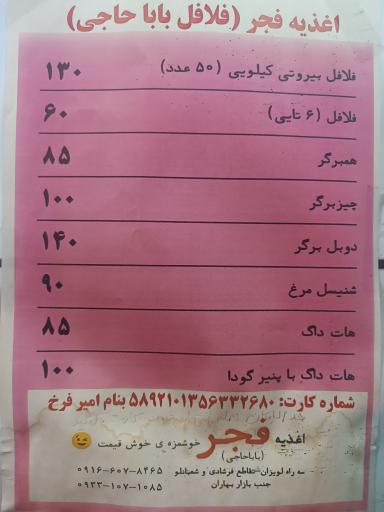 اغذیه فجر (فلافل بابا حاجی)
فلافل بیروتی کیلویی (۵۰ عدد) ۱۳۰
فلافل (۶ تایی) ۶۰
همبرگر ۸۵
چیزبرگر ۱۰۰
دوبل برگر ۱۴۰
شنیسل مرغ ۹۰
هات داگ ۸۵
هات داگ با پنیر گودا ۱۰۰
شماره کارت: ۵۸۹۲۱۰۱۳۵۶۳۳۲۶۸۰ بنام امیر فرخ
اغذیه فجر خوشمزه ی خوش قیمت
(باباحاجی)
سه راه لویزان تقاطع فرشادی و شعبانلو ۰۹۱۶-۶۰۷-۸۴۶۵
جنب بازار بهاران ۰۹۳۳-۱۰۷-۱۰۸۵